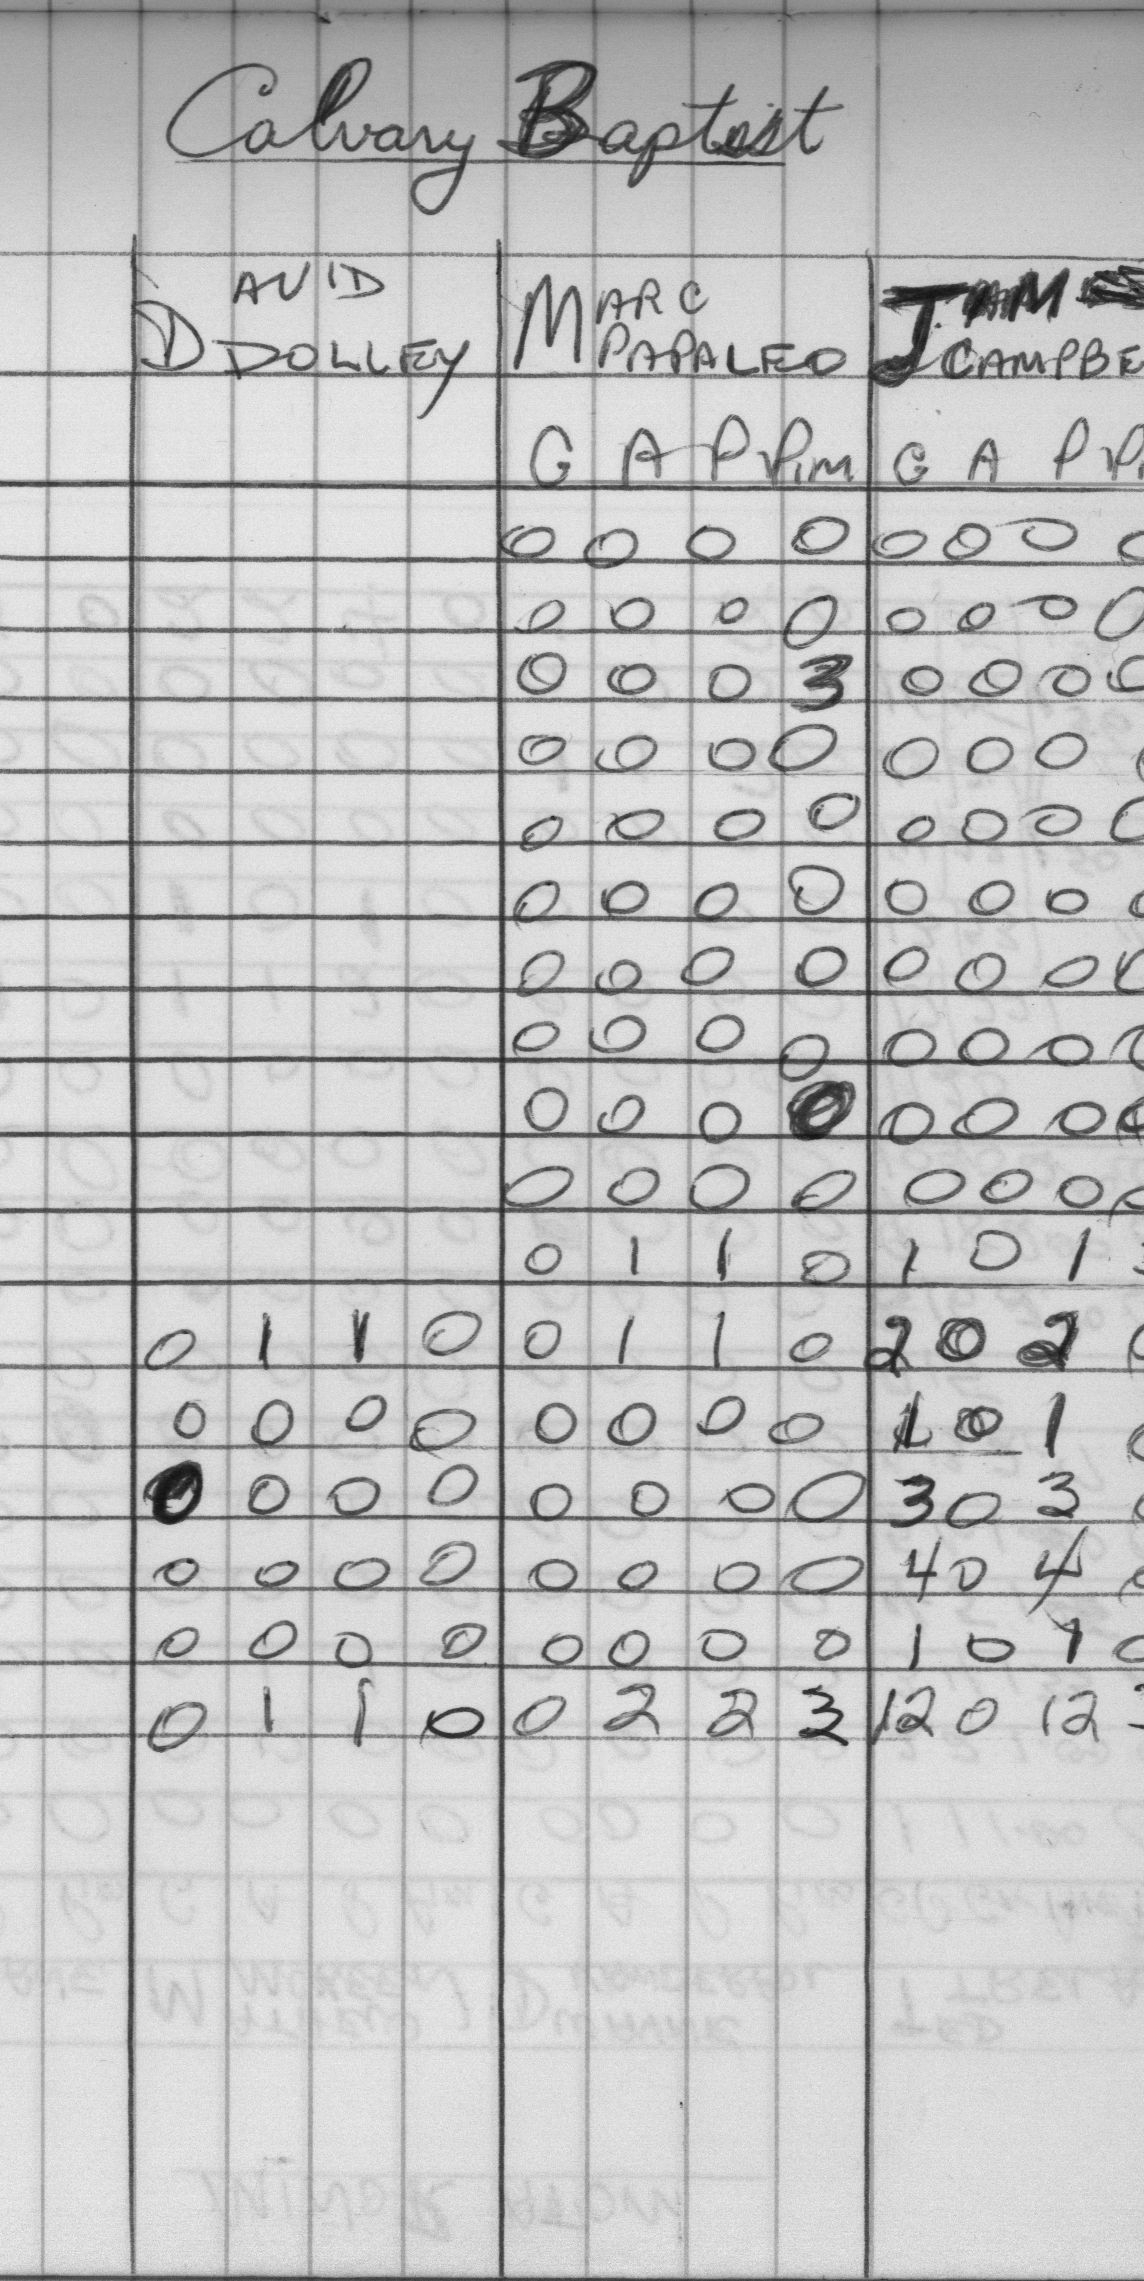 Calvary Baptist
DAVID DOLLEY MARC PAPALEO JAMES CAMPBE
G A P Pim G A P Pi
0 0 0 0 0 0 0 0
0 0 0 0 0 0 0 0
0 0 0 3 0 0 0 0
0 0 0 0 0 0 0
0 0 0 0 0 0 0 0
0 0 0 0 0 0 0 0
0 0 0 0 0 0 0 0
0 0 0 0 0 0 0 0
0 0 0 0 0 0 0 0
0 0 0 0 0 0 0 0
0 1 1 0 1 0 1
0 1 1 0 0 1 1 0 2 0 2 0
0 0 0 0 0 0 0 0 1 0 1 0
0 0 0 0 0 0 0 0 3 0 3 0
0 0 0 0 0 0 0 0 4 0 4 0
0 0 0 0 0 0 0 0 1 0 1 0
0 1 1 0 0 2 2 3 12 0 12